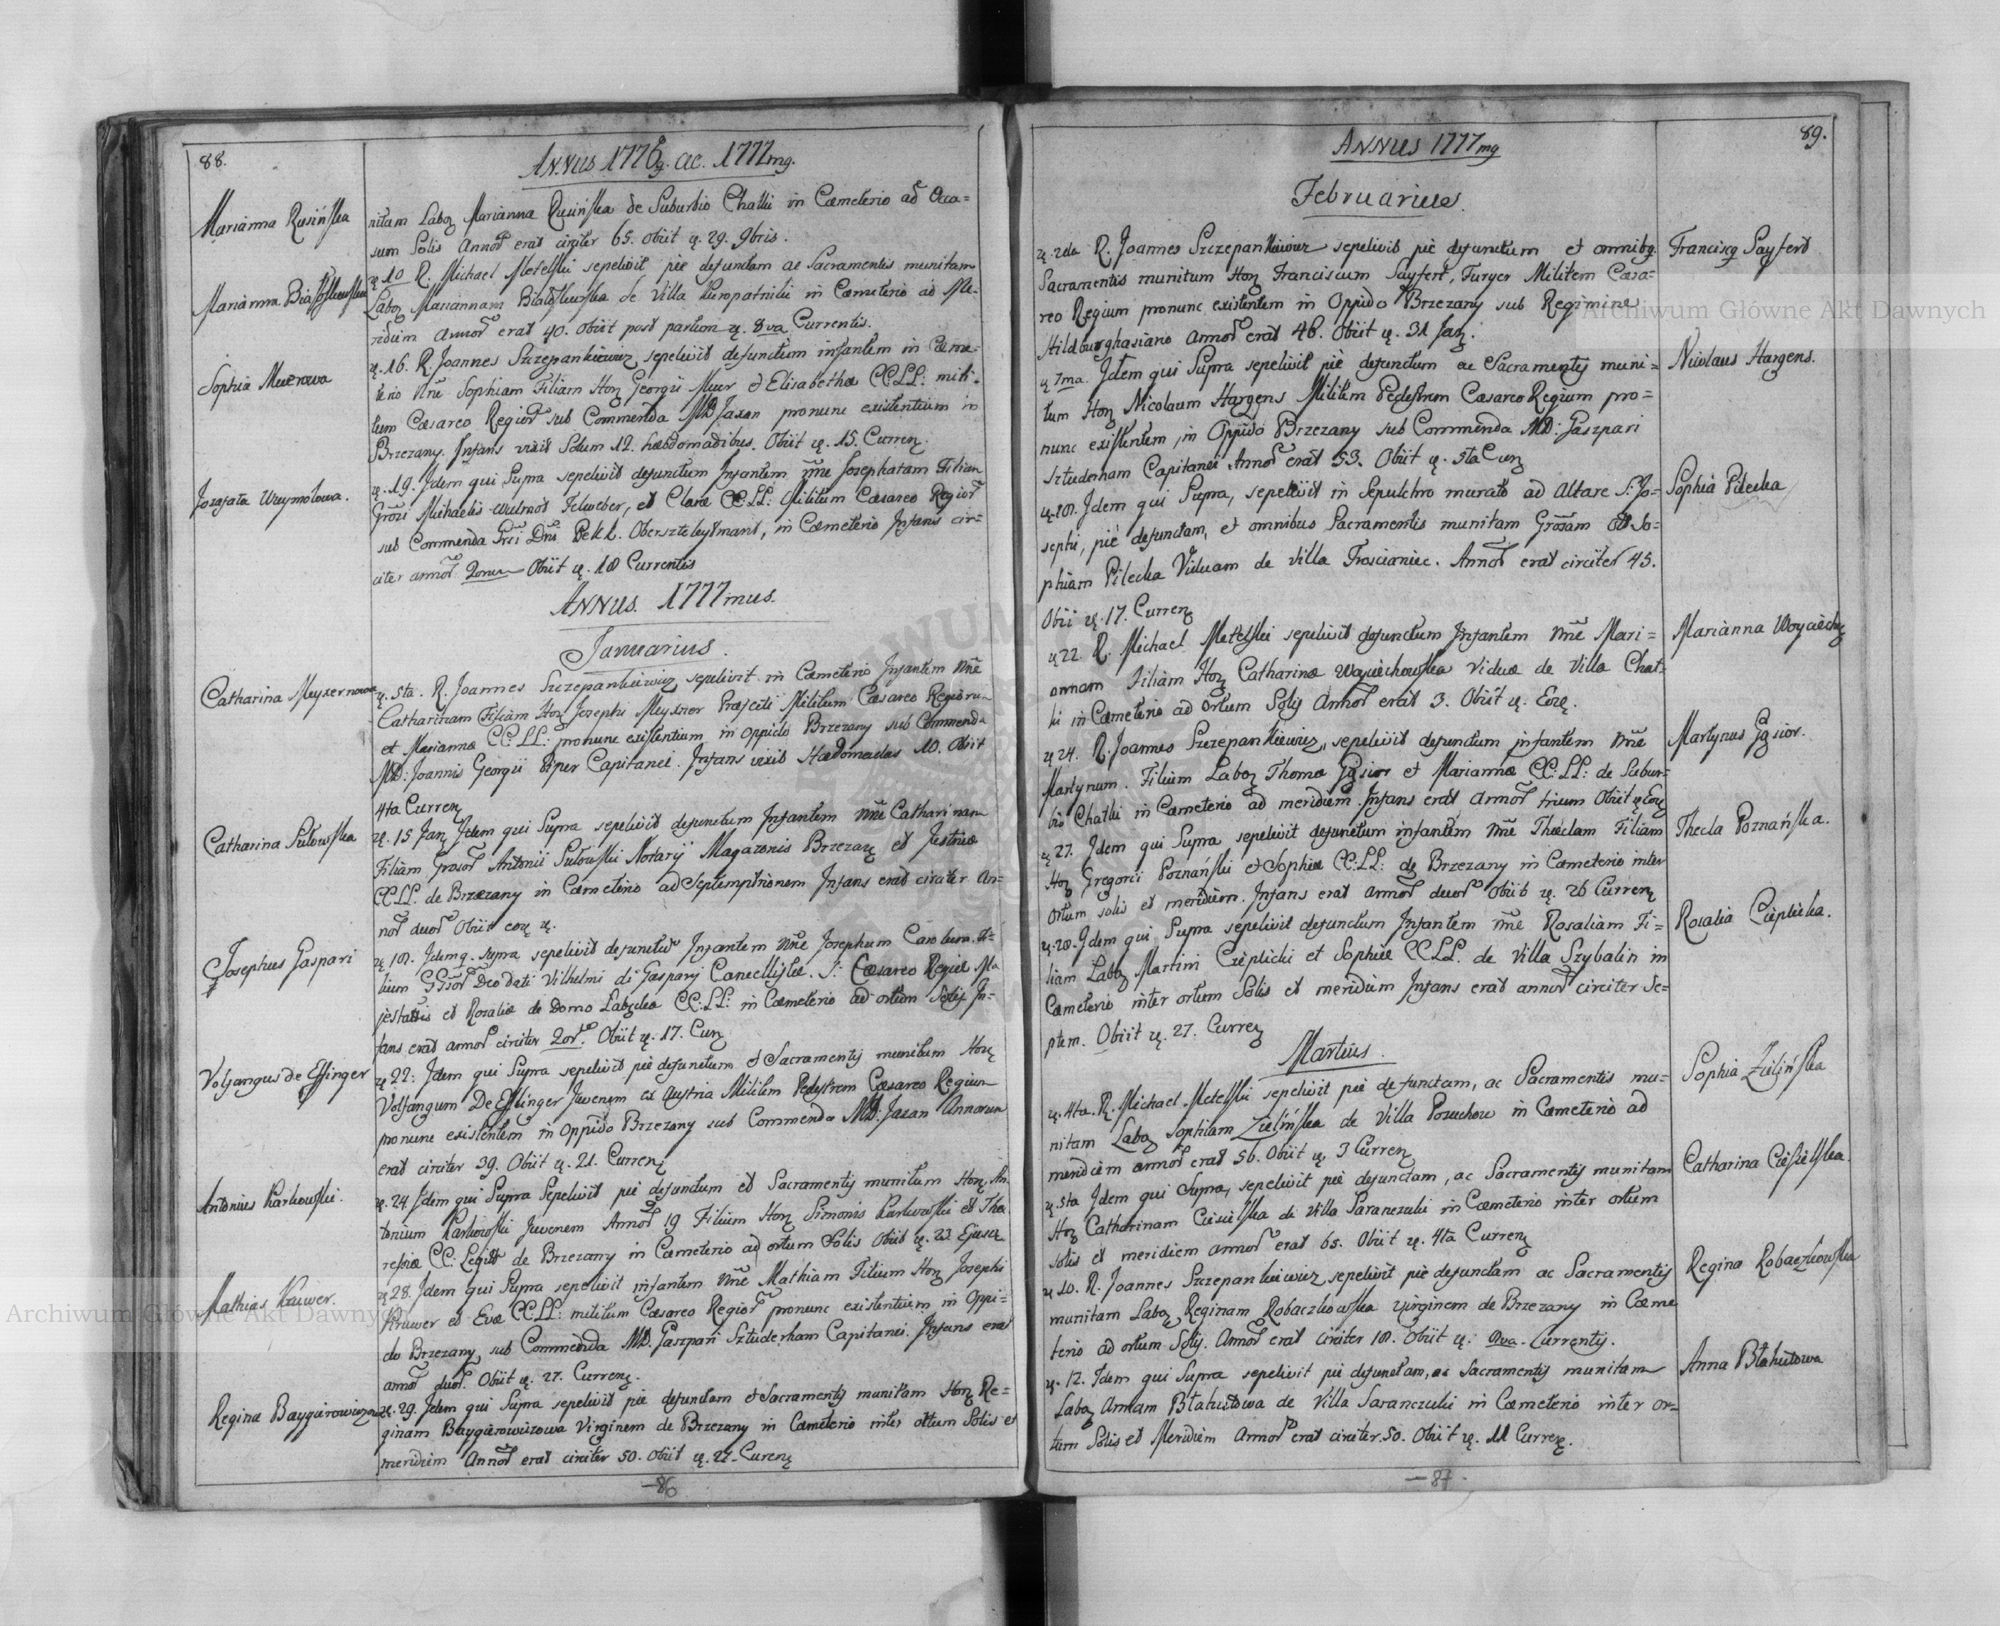 88.
ANNUS 1776g. ac. 1777mg.
Marianna Rusińska
nitam Laboz Marianna Rusińska de Suburbio Chatki in Cæmeterio ad Occa=
sum Solis Annor erat circiter 65. Obiit ꝗ. 29. 9bris.
Marianna Białoskurska
ꝗ 10 R. Michael Metelski sepelivit pie defunctam ac Sacramentis munitam
Laboz Mariannam de Villa Kuropatniki in Cæmeterio ad Me-
ridiem Annor erat 40. Obiit post partum ꝗ. 8va Currentis.
Sophia Muerowa
ꝗ. 16. R. Joannes Szczepankiewicz sepelivit defunctum infantem in Cæme-
terio Nne Sophiam Filiam Hon Georgii Muer et Elisabetha CC.LL: mili-
tum Cæsareo Regior sub Commenda MD Jaxan pronunc existentium in
Brzezany. Infans vixit Solum 12. hæbdomadibus. Obiit ꝗ. 15. Curren.
Jozafata Wuymotowa.
ꝗ. 19. Idem qui Supra sepelivit defunctum Infantem Nne Josephatam Filiam
Grosi Michaelis Felweber, et Claræ CC.LL: Militum Cæsareo Regior
sub Commenda Grsi Dni Pekk. Oberszteleytmant, in Cæmeterio Infans cir-
citer annor 2orum Obiit ꝗ. 18 Currentis
ANNUS. 1777mus.
Januarius.
Catharina Meyxnerowa
ꝗ. 5ta. R. Joannes Szczepankiewicz sepelivit in Cæmeterio Infantem Nne
Catharinam Filiam Hon Josephi Meyxner Præfecti Militum Cæsareo Regiorum
et Mariannæ CC.LL: pronunc existentium in Oppido Brzezany sub Commenda
MD: Joannis Georgii Piper Capitanei. Infans vixit Hædomadas 10. Obiit
4ta Curren
Catharina Sułowska
ꝗ. 15 Jan Idem qui Supra sepelivit defunctum Infantem Nne Catharinam
Filiam Grosor Antonii Sułowski Notarij Magazonis Brzezan et Justinæ
CC.LL. de Brzezany in Cæmeterio ad Septemptrionem Infans erat circiter An-
nor duor Obiit eor ꝗ.
Josephus Gaspari
ꝗ 18. Idem q. supra sepelivit defunctum Infantem Nne Josephum Carolum Fi-
lium GGsor Deodati Vilhelmi di Gasparj Cancellistæ S: Cæsareo Regiæ Ma
jestatis et Rosaliæ de Domo CC:LL: in Cæmeterio ad ortum Solis In-
fans erat annor circiter 2or. Obiit ꝗ. 17. Cur
Volfangus de Efsinger
ꝗ 22: Idem qui Supra sepelivit pie defunctum et Sacramentis munitum Hon
Volfangum De Efsinger Juvenem ex Austria Militem Pedestrem Cæsareo Regium
pronunc existentem in Oppido Brzezany sub Commenda MD. Jaxan Annorum
erat circiter 39. Obiit ꝗ. 21. Curren
Antonius Karkowski.
ꝗ. 24. Idem qui Supra Sepelivit pie defunctum et Sacramentis munitum Hon An
tonium Karkowski Juvenem Annor 19 Filium Hon Simonis Karkowski et The
resiæ CC. Legitt de Brzezany in Cæmeterio ad ortum Solis Obiit ꝗ. 23 Ejusd
Mathias Kruwer.
ꝗ 28. Idem qui Supra sepelivit infantem Nne Mathiam Filium Hon Josephi
Kruwer et Evæ CC.LL: militum Cæsareo Regior pronunc existentium in Oppi=
do Brzezany sub Commenda MD. Gaszpari Sztuderham Capitanei. Infans erat
annor duor. Obiit ꝗ. 27. Curren.
Regina Baygierowiczowa
ꝗ. 29. Idem qui Supra sepelivit pie defunctam et Sacramentis munitam Hon Re=
ginam Baygierowiczowa Virginem de Brzezany in Cæmeterio inter ortum Solis et
meridiem Annor erat circiter 50. Obiit ꝗ. 27. Curen
-86
89.
ANNUS 1777mg
Februarius.
Franciscg Sayfert
ꝗ. 2da R. Joannes Szczepankiewicz sepelivit pie defunctum et omnibg.
Sacramentis munitum Hon Franciscum Sayfert, Furyer Militem Cæsa-
reo Regium pronunc existentem in Oppido Brzezany sub Regimine
Hildburghasiano Annor erat 46. Obiit ꝗ. 31 Jan.
Nicolaus Hargens.
ꝗ 7ma. Idem qui Supra sepelivit pie defunctum ac Sacramentis muni-
tum Hon Nicolaum Hargens Militem Pedestrem Cæsareo Regium pro=
nunc existentem in Oppido Brzezany sub Commenda MD: Gaszpari
Sztuderham Capitanei Annor erat 53. Obiit ꝗ. 5ta Cur
Sophia Pilecka
ꝗ. 18. Idem qui Supra, sepelivit in Sepulchro murato ad Altare S. Jo-
sephi, pie defunctam, et omnibus Sacramentis munitam Grosam So-
phiam Pilecka Viduam de Villa Trościaniec. Annor erat circiter 45.
Obii ꝗ. 17. Curren
Marianna Woyciechow
ꝗ 22. R. Michael Metelski sepelivit defunctum Infantem Nne Mari=
annam Filiam Hon Catharinæ Woyciechowska Viduæ de Villa Chat-
ki in Cæmeterio ad Ortum Solis Annor erat 3. Obiit ꝗ. Eor.
Martynus Gąsior.
ꝗ 24. R. Joannes Szczepankiewicz, sepelivit defunctum infantem Nne
Martynum. Filium Laboz Thomæ Gąsior et Mariannæ CC:LL: de Subur-
bio Chatki in Cæmeterio ad meridiem. Infans erat Annor trium Obiit ꝗ Eor
Thecla Poznańska.
ꝗ 27. Idem qui Supra, sepelivit defunctum infantem Nne Theclam Filiam
Hon Gregorii Poznański et Sophiæ CC.LL: de Brzezany in Cæmeterio inter
Ortum solis et meridiem. Infans erat annor duor Obiit ꝗ. 26 Curren
Rozalia Cieplicka.
ꝗ. 28. Idem qui Supra sepelivit defunctum Infantem Nne Rosaliam Fi=
liam Laboz Martini Cieplicki et Sophiæ CC.LL. de Villa Szybalin in
Cæmeterio inter ortum Solis et meridiem Infans erat annor circiter Se-
ptem. Obiit ꝗ. 27. Curren
Martius.
Sophia Zielińska
ꝗ. 4ta. R. Michael Metelski sepelivit pie defunctam, ac Sacramentis mu=
nitam Laboz Sophiam Zielińska de Villa Poruchow in Cæmeterio ad
meridiem annor erat 56. Obiit ꝗ. 3 Curren
Catharina Ciesielska.
ꝗ. 5ta Idem qui Supra, sepelivit pie defunctam, ac Sacramentis munitam
Hon Catharinam Ciesielska de Villa Saranczuki in Cæmeterio inter ortum
solis et meridiem annor erat 65. Obiit ꝗ. 4ta Curren
Regina Robaczkowska
ꝗ 10. R. Joannes Szczepankiewicz sepelivit pie defunctam ac Sacramentis
munitam Laboz Reginam Robaczkowska virginem de Brzezany in Cæme
terio ad ortum Solis. Annor erat circiter 18. Obiit ꝗ: 9va. Currentis.
Anna Błahutowa
ꝗ. 12. Idem qui Supra sepelivit pie defunctam, ac Sacramentis munitam
Laboz Annam Błahutowa de Villa Saranczuki in Cæmeterio inter Or=
tum Solis et Meridiem Annor erat circiter. 50. Obiit ꝗ. 11 Curren.
-87-
Archiwum Główne Akt Dawnych
Archiwum Główne Akt Dawnych